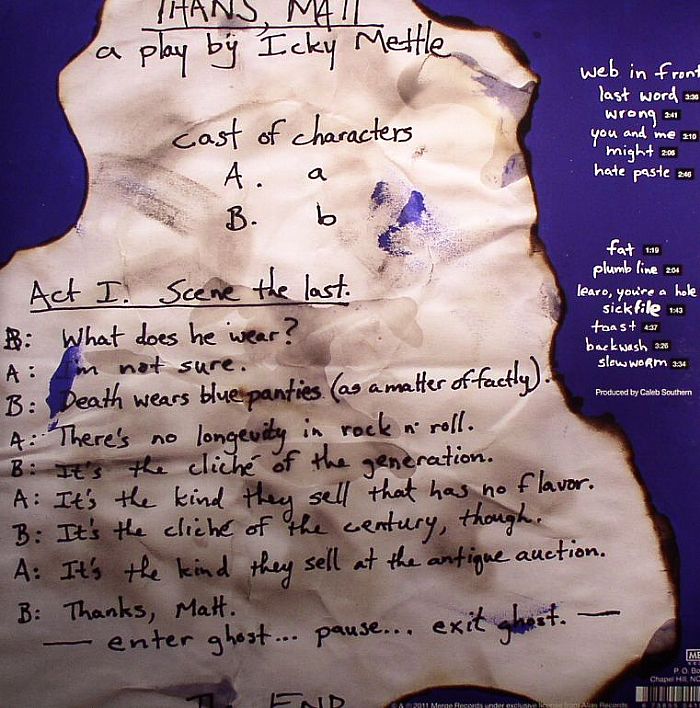 THANS, MATT
a play by Icky Mettle
cast of characters
A. a
B. b
Act I. Scene the last.
B: What does he wear?
A: I'm not sure.
B: Death wears blue panties (as a matter of factly).
A: There's no longevity in rock n' roll.
B: It's the cliché of the generation.
A: It's the kind they sell that has no flavor.
B: It's the cliché of the century, though.
A: It's the kind they sell at the antique auction.
B: Thanks, Matt.
— enter ghost... pause... exit ghost. —
THE END
web in front
last word 3:36
wrong 2:41
you and me 2:10
might 2:05
hate paste 2:46
fat 1:19
plumb line 2:04
learo, you're a hole
sickfile 1:43
toast 4:37
backwash 3:26
slowworm 3:34
Produced by Caleb Southern
P. O. Bo
Chapel Hill, NC
℗ & © 2011 Merge Records under exclusive license from Alias Records